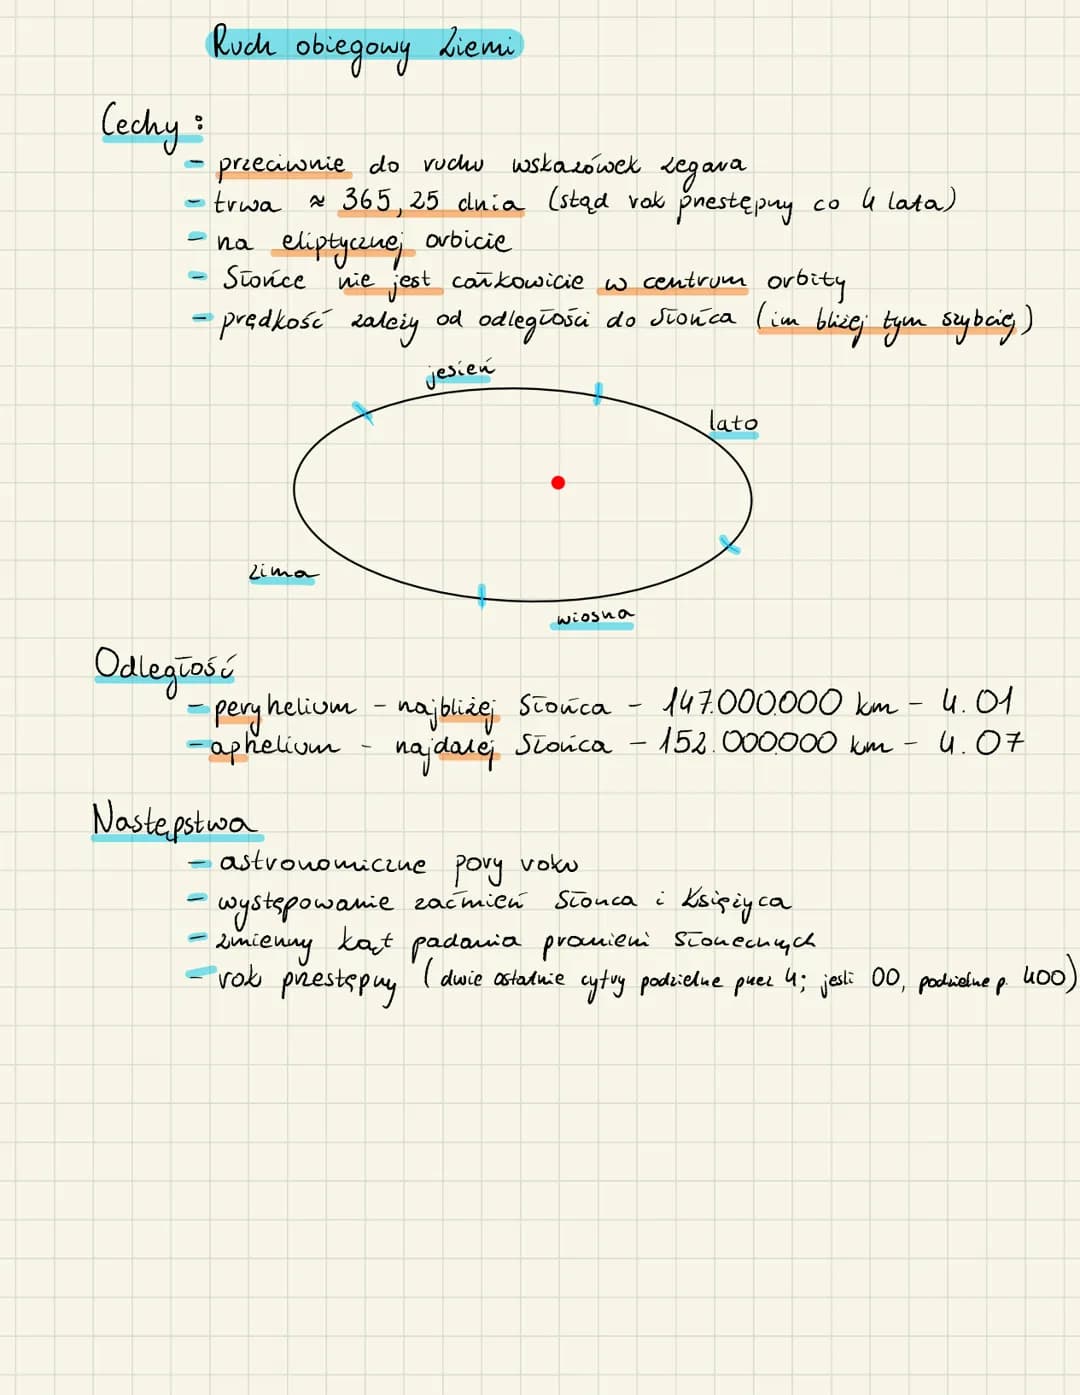 Ruch obiegowy Ziemi
Cechy :
- przeciwnie do ruchu wskazówek zegara
- trwa ≈ 365,25 dnia (stąd rok przestępny co 4 lata)
- na eliptycznej orbicie
- Słońce nie jest całkowicie w centrum orbity
- prędkość zależy od odległości do Słońca (im bliżej tym szybciej)
jesień
lato
zima
wiosna
Odległość
- peryhelium - najbliżej Słońca - 147.000.000 km - 4.01
- aphelium - najdalej Słońca - 152.000.000 km - 4.07
Następstwa
- astronomiczne pory roku
- występowanie zaćmień Słońca i Księżyca
- zmienny kąt padania promieni słonecznych
- rok przestępny (dwie ostatnie cyfry podzielne przez 4; jeśli 00, podzielne p. 400)